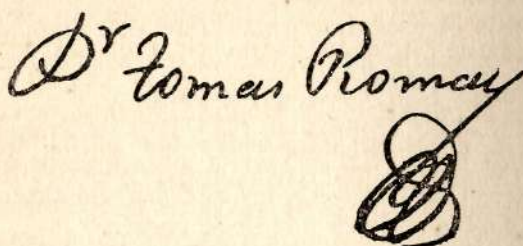 Dr Tomas Romay